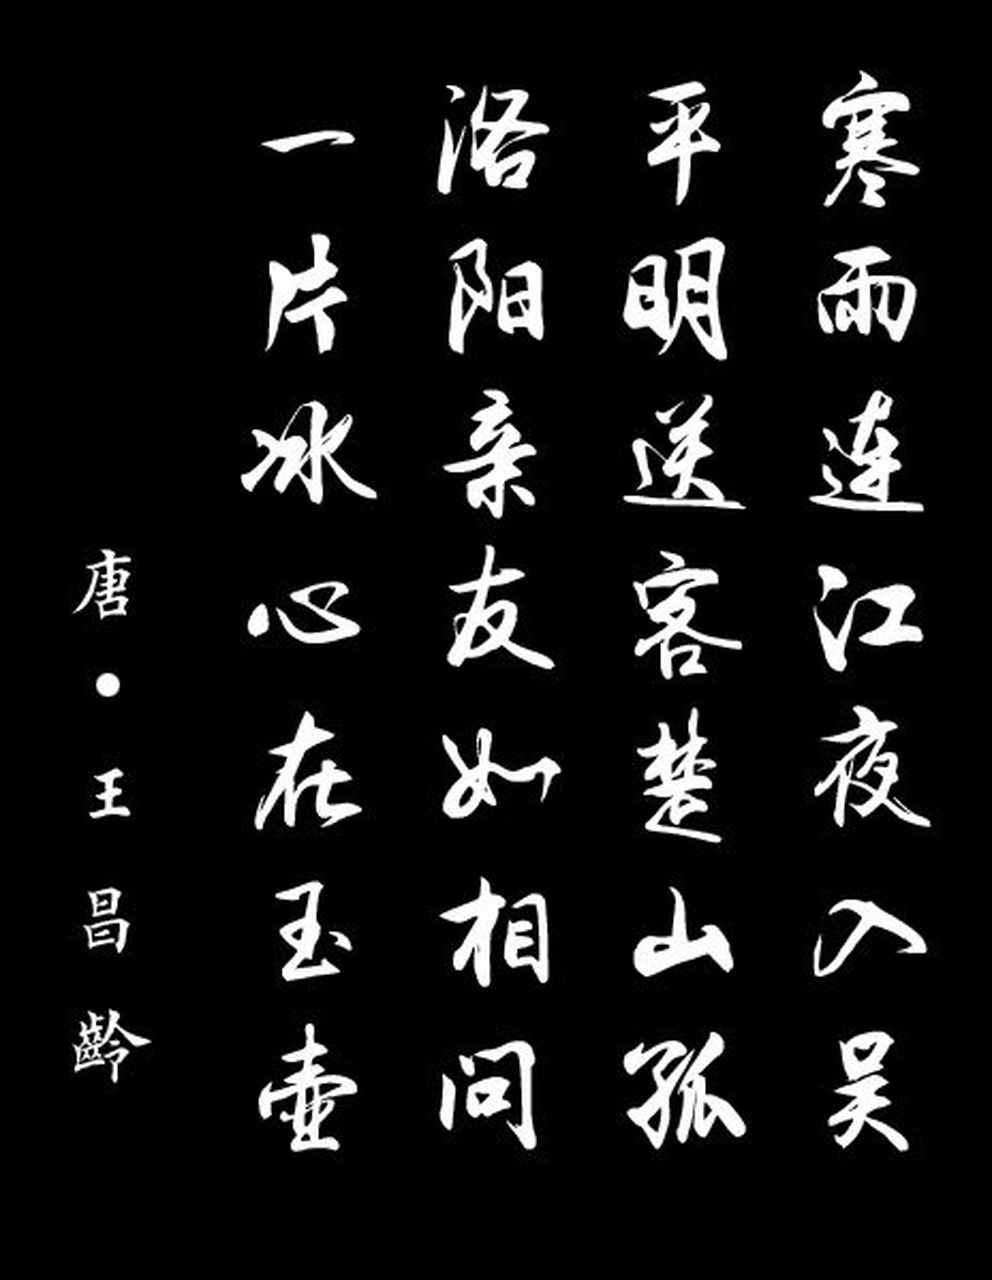 寒雨连江夜入吴
平明送客楚山孤
洛阳亲友如相问
一片冰心在玉壶
唐·王昌齡